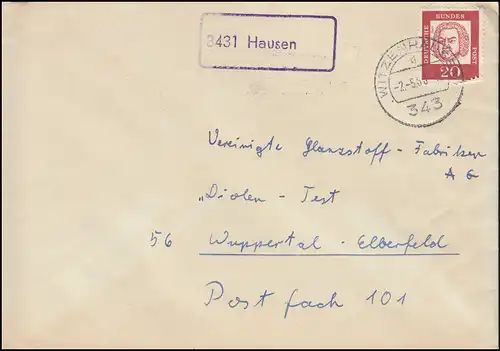 3431 Hausen
DEUTSCHE BUNDESPOST
20
WITZENHAUSEN
343
Vereinigte Glanzstoff-Fabriken
AG
"Diolen - Test
56 Wuppertal - Elberfeld
Postfach 101